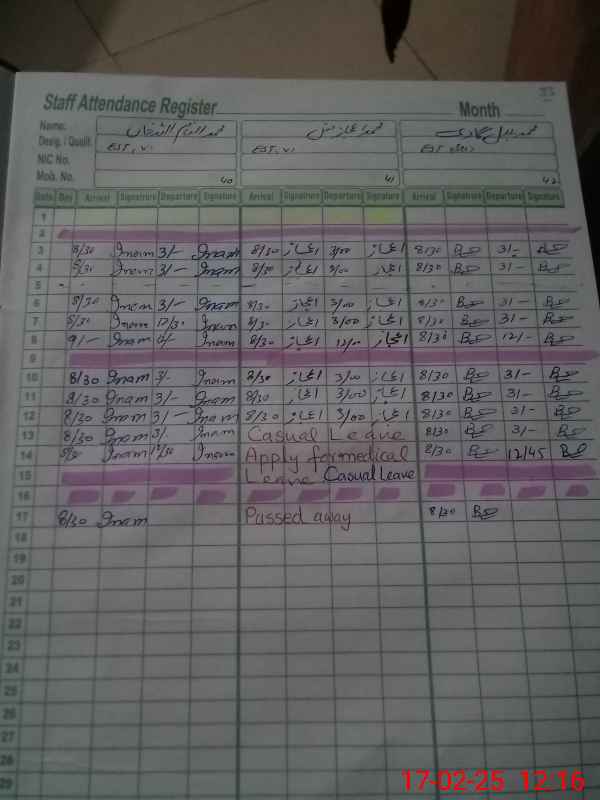 Staff Attendance Register Month
Name: محمد انعام الحق خان محمد اعجاز محمد بلال
Desig. / Qualif. EST, VI EST, VI EST
NIC No.
Mob. No. 40 41 42
Date Day Arrival Signature Departure Signature Arrival Signature Departure Signature Arrival Signature Departure Signature
1
2
3 8/30 Inam 3/- Inam 8/30 اعجاز 3/00 اعجاز 8/30 3/-
4 8/30 Inam 3/- Inam 8/30 اعجاز 3/00 اعجاز 8/30 3/-
5 - - - - - - - - - - - -
6 8/30 Inam 3/- Inam 8/30 اعجاز 3/00 اعجاز 8/30 3/-
7 8/30 Inam 12/30 Inam 8/30 اعجاز 3/00 اعجاز 8/30 3/-
8 9/- Inam Inam 8/30 اعجاز 12/00 اعجاز 8/30 12/-
9
10 8/30 Inam 3/- Inam 8/30 اعجاز 3/00 اعجاز 8/30 3/-
11 8/30 Inam 3/- Inam 8/30 اعجاز 3/00 اعجاز 8/30 3/-
12 8/30 Inam 3/- Inam 8/30 اعجاز 3/00 اعجاز 8/30 3/-
13 8/30 Inam 3/- Inam Casual Leave 8/30 3/-
14 8/30 Inam 12/30 Inam Apply for medical 8/30 12/45
15 Leave Casual Leave
16
17 8/30 Inam Passed away 8/30
18
19
20
21
22
23
24
25
26
27
28
29
17-02-25 12:16